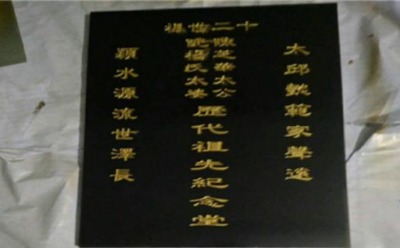 十二世祖
太邱懿範家聲遠
陳芝華太公
妣楊氏太婆
歷代祖先紀念堂
穎水源流世澤長